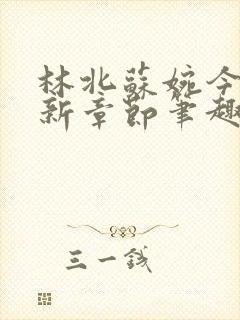 林北蘇婉今
新章節筆趣
三一錢